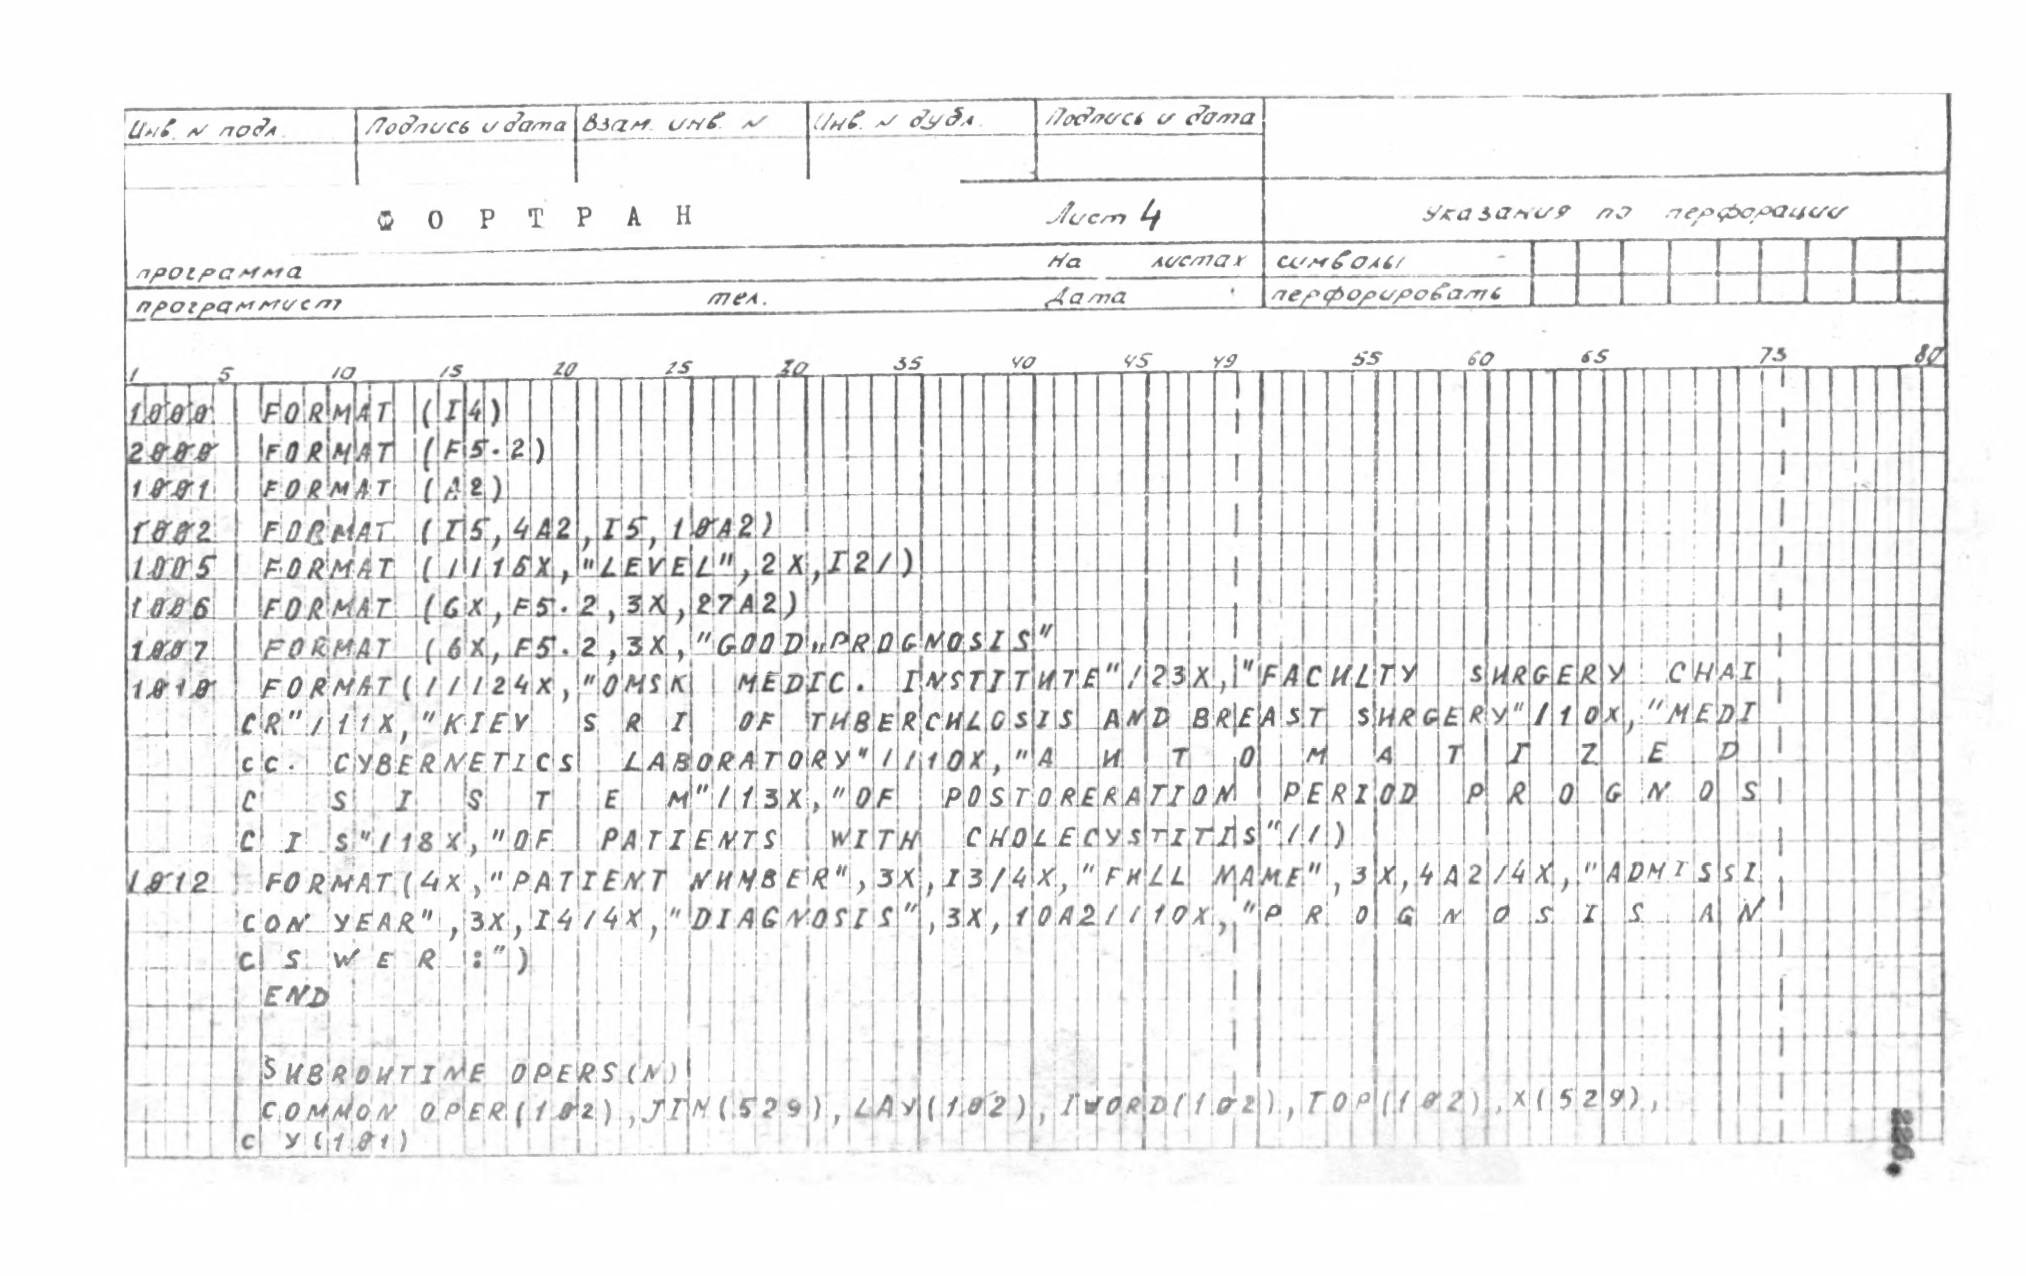 Инв. N подл. Подпись и дата Взам. инв. N Инв. N дубл. Подпись и дата
Ф О Р Т Р А Н Лист 4 Указания по перфорации
программа На листах символы
программист тел. Дата перфорировать
1 5 10 15 20 25 30 35 40 45 49 55 60 65 73 80
1000 FORMAT (I4)
2000 FORMAT (F5.2)
1001 FORMAT (A2)
1002 FORMAT (I5,4A2,I5,10A2)
1005 FORMAT (///15X,"LEVEL",2X,I2/)
1006 FORMAT (6X,F5.2,3X,27A2)
1007 FORMAT (6X,F5.2,3X,"GOOD„PROGNOSIS"
1010 FORMAT(///24X,"OMSK MEDIC. INSTITИTE"/23X,"FACИLTY SИRGERY CHAI
CR"/11X,"KIEV S R I OF TИBERCИLOSIS AND BREAST SИRGERY"/10X,"MEDI
CC. CYBERNETICS LABORATORY"///10X,"A И T O M A T I Z E D
C S I S T E M"/13X,"OF POSTORERATION PERIOD P R O G N O S
C I S"/18X,"OF PATIENTS WITH CHOLECYSTITIS"//)
1012 FORMAT(4X,"PATIENT NИMBER",3X,I3/4X,"FИLL MAME",3X,4A2/4X,"ADMISSI
CON YEAR",3X,I4/4X,"DIAGNOSIS",3X,10A2///10X,"P R O G N O S I S A N
C S W E R :")
END
SИBROИTIME OPERS(N)
COMMON OPER(102),JIM(529),LAY(102),IWORD(102),TOP(102),X(529),
C Y(101)
226.